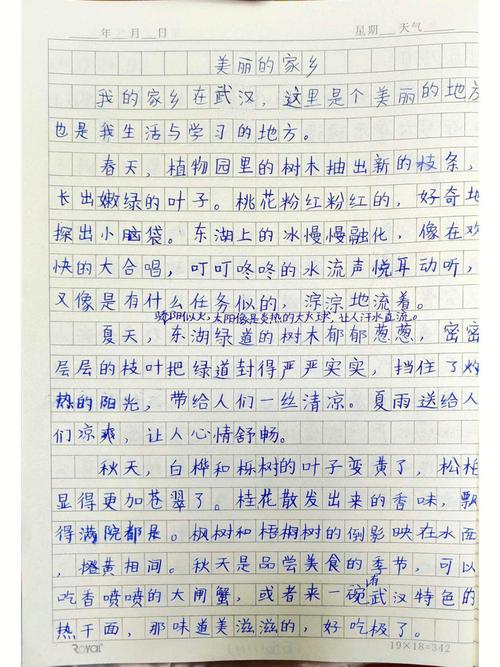 年 月 日 星期 天气
美丽的家乡
我的家乡在武汉，这里是个美丽的地方
也是我生活与学习的地方。
春天，植物园里的树木抽出新的枝条，
长出嫩绿的叶子。桃花粉红粉红的，好奇地
探出小脑袋。东湖上的冰慢慢融化，像在欢
快的大合唱，叮叮咚咚的水流声悦耳动听，
又像是有什么任务似的，淙淙地流着。
骄阳似火，太阳像是炎热的大火球，让人汗水直流。
夏天，东湖绿道的树木郁郁葱葱，密密
层层的枝叶把绿道封得严严实实，挡住了灼
热的阳光，带给人们一丝清凉。夏雨送给人
们凉爽，让人心情舒畅。
秋天，白桦和栎树的叶子变黄了，松柏
显得更加苍翠了。桂花散发出来的香味，飘
得满院都是。枫树和梧桐树的倒影映在水面
，橙黄相间。秋天是品尝美食的季节，可以
吃香喷喷的大闸蟹，或者来一碗有武汉特色的
热干面，那味道美滋滋的，好吃极了。
ROYAL 19×18=342